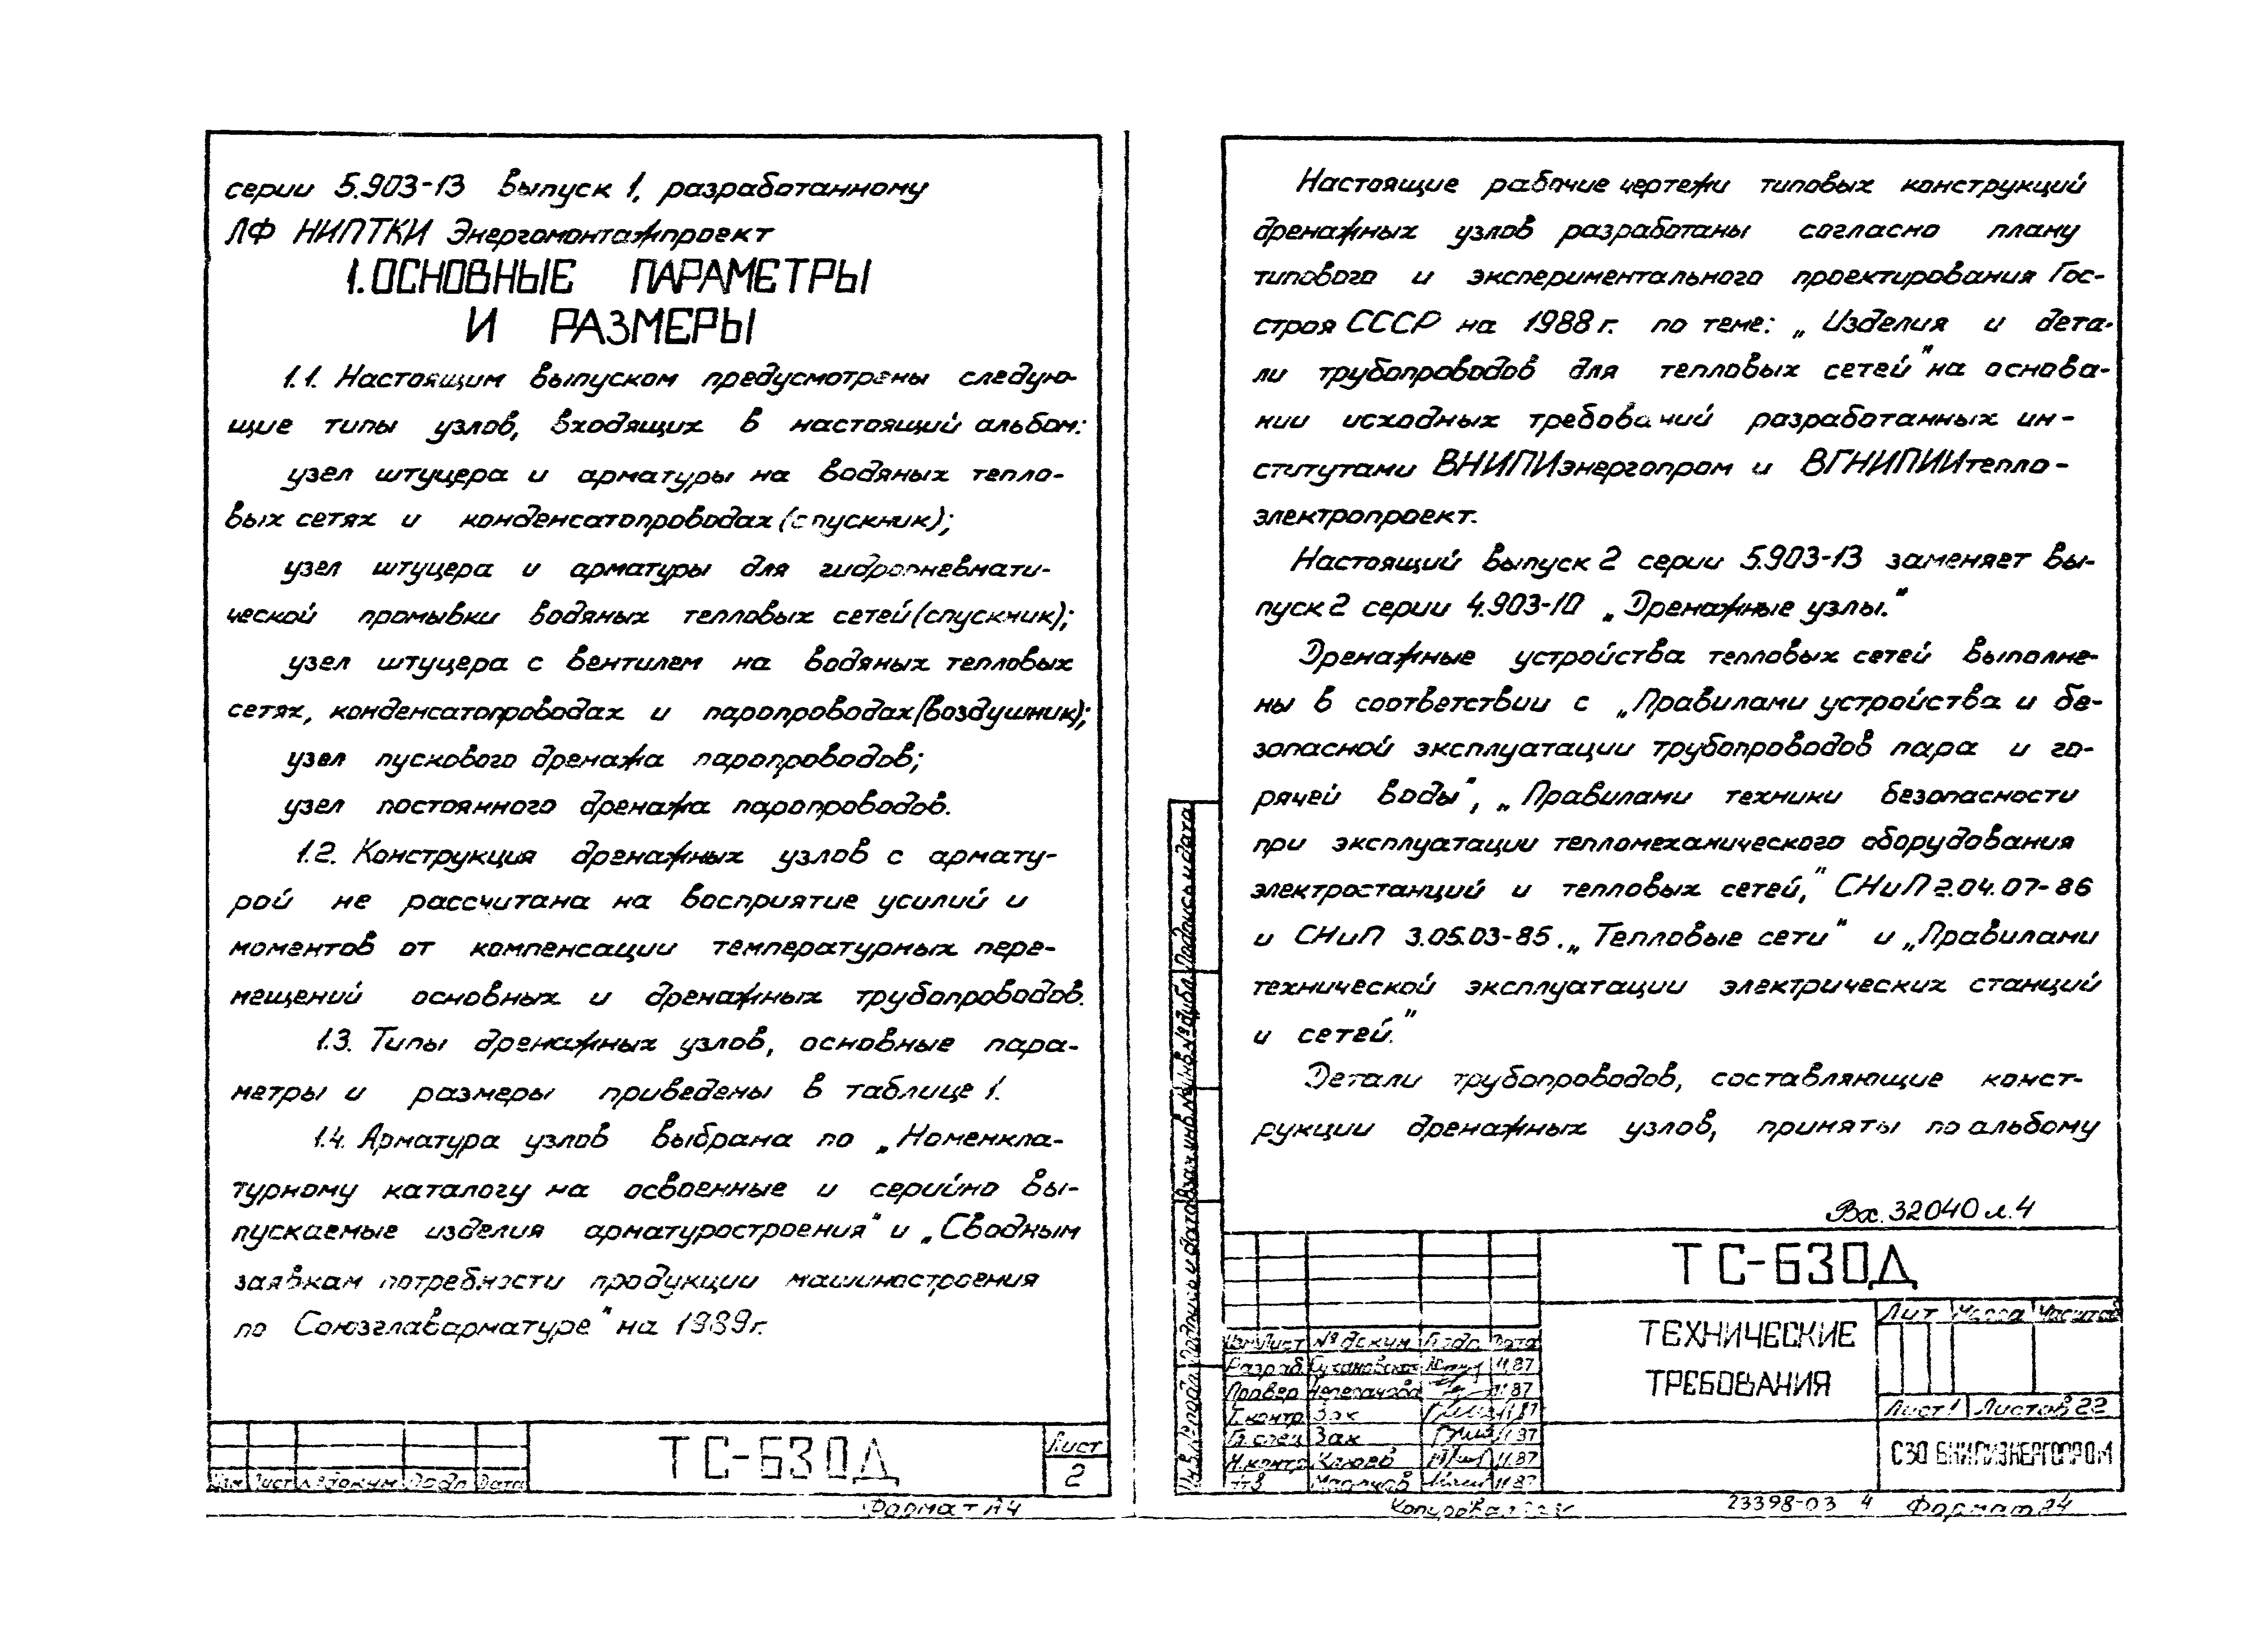 серии 5.903-13 выпуск 1, разработанному
ЛФ НИПТКИ Энергомонтажпроект
1. ОСНОВНЫЕ ПАРАМЕТРЫ
И РАЗМЕРЫ
1.1. Настоящим выпуском предусмотрены следую-
щие типы узлов, входящих в настоящий альбом:
узел штуцера и арматуры на водяных тепло-
вых сетях и конденсатопроводах (спускник);
узел штуцера и арматуры для гидропневмати-
ческой промывки водяных тепловых сетей (спускник);
узел штуцера с вентилем на водяных тепловых
сетях, конденсатопроводах и паропроводах (воздушник);
узел пускового дренажа паропроводов;
узел постоянного дренажа паропроводов.
1.2. Конструкция дренажных узлов с армату-
рой не рассчитана на восприятие усилий и
моментов от компенсации температурных пере-
мещений основных и дренажных трубопроводов.
1.3. Типы дренажных узлов, основные пара-
метры и размеры приведены в таблице 1.
1.4. Арматура узлов выбрана по „Номенкла-
турному каталогу на освоенные и серийно вы-
пускаемые изделия арматуростроения" и „Сводным
заявкам потребности продукции машиностроения
по Союзглаварматуре" на 1989г.
Изм Лист № докум Подп Дата
ТС-630Д
Лист
2
Формат А4
Настоящие рабочие чертежи типовых конструкций
дренажных узлов разработаны согласно плану
типового и экспериментального проектирования Гос-
строя СССР на 1988 г. по теме: „Изделия и дета-
ли трубопроводов для тепловых сетей" на основа-
нии исходных требований разработанных ин-
ститутами ВНИПИэнергопром и ВГНИПИИтепло-
электропроект.
Настоящий выпуск 2 серии 5.903-13 заменяет вы-
пуск 2 серии 4.903-10 „Дренажные узлы."
Дренажные устройства тепловых сетей выполне-
ны в соответствии с „Правилами устройства и бе-
зопасной эксплуатации трубопроводов пара и го-
рячей воды", „Правилами техники безопасности
при эксплуатации тепломеханического оборудования
электростанций и тепловых сетей," СНиП 2.04.07-86
и СНиП 3.05.03-85. „Тепловые сети" и „Правилами
технической эксплуатации электрических станций
и сетей."
Детали трубопроводов, составляющие конст-
рукции дренажных узлов, приняты по альбому
Вх. 32040 л.4
Инв.№ подл Подпись и дата Взам.инв.№ Инв.№ дубл. Подпись и дата
ТС-630Д
ТЕХНИЧЕСКИЕ
ТРЕБОВАНИЯ
Лит Масса Масштаб
Лист 1 Листов 22
СЗО ВНИПИЭНЕРГОПРОМ
Изм Лист № докум Подп Дата
Разраб 11.87
Провер 11.87
Т.контр Зак 11.87
Гл.спец Зак 11.87
Н.контр 11.87
Утв 11.87
Копировал
23398-03 4
Формат А4